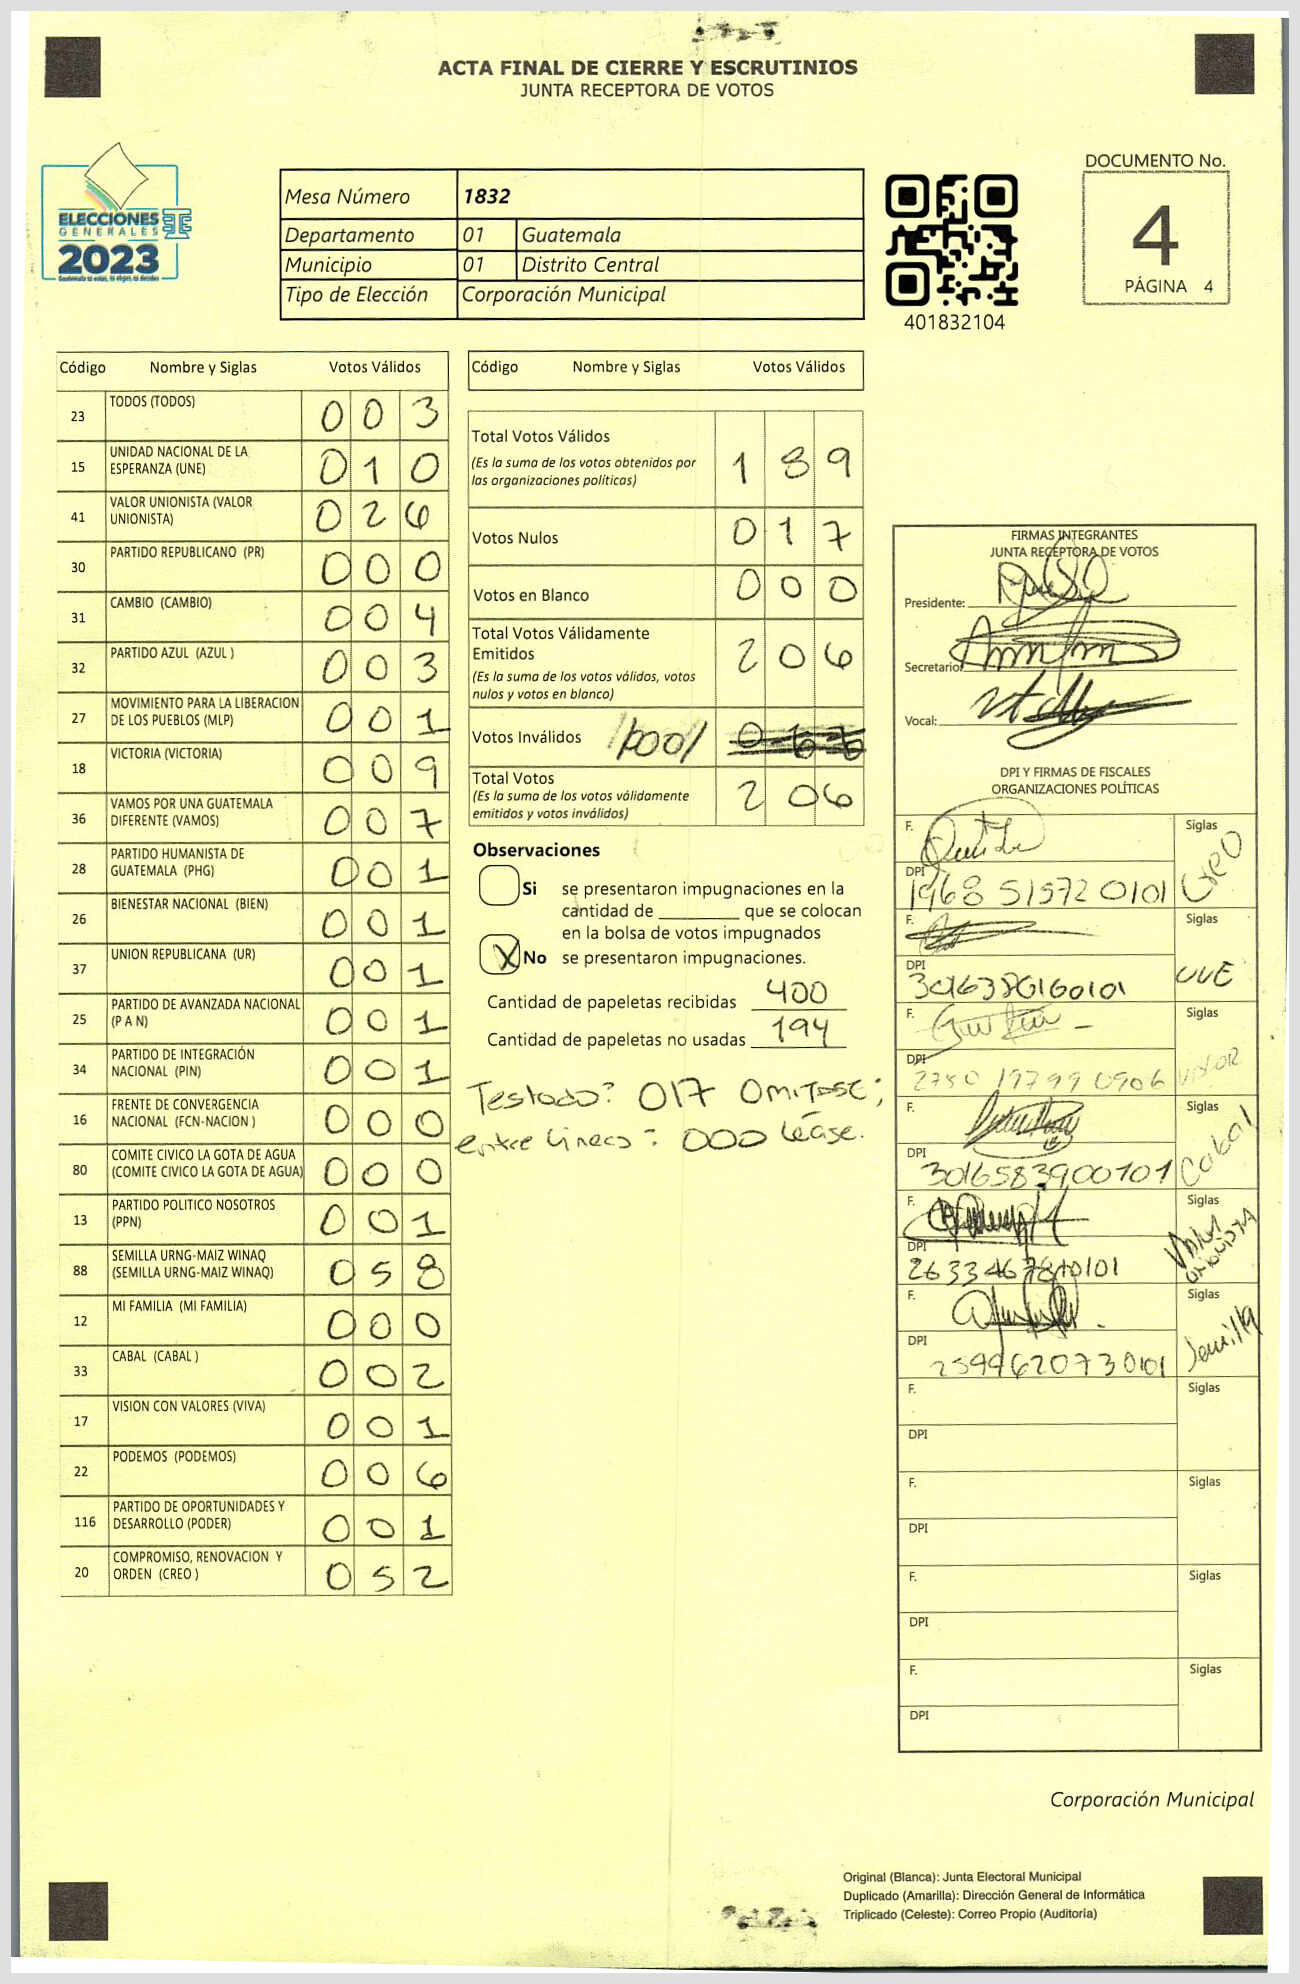 ACTA FINAL DE CIERRE Y ESCRUTINIOS
JUNTA RECEPTORA DE VOTOS
ELECCIONES
GENERALES
2023
Mesa Número 1832
Departamento 01 Guatemala
Municipio 01 Distrito Central
Tipo de Elección Corporación Municipal
401832104
DOCUMENTO No.
4
PÁGINA 4
Código Nombre y Siglas Votos Válidos
23 TODOS (TODOS) 0 0 3
15 UNIDAD NACIONAL DE LA ESPERANZA (UNE) 0 1 0
41 VALOR UNIONISTA (VALOR UNIONISTA) 0 2 6
30 PARTIDO REPUBLICANO (PR) 0 0 0
31 CAMBIO (CAMBIO) 0 0 4
32 PARTIDO AZUL (AZUL ) 0 0 3
27 MOVIMIENTO PARA LA LIBERACION DE LOS PUEBLOS (MLP) 0 0 1
18 VICTORIA (VICTORIA) 0 0 9
36 VAMOS POR UNA GUATEMALA DIFERENTE (VAMOS) 0 0 7
28 PARTIDO HUMANISTA DE GUATEMALA (PHG) 0 0 1
26 BIENESTAR NACIONAL (BIEN) 0 0 1
37 UNION REPUBLICANA (UR) 0 0 1
25 PARTIDO DE AVANZADA NACIONAL (P A N) 0 0 1
34 PARTIDO DE INTEGRACIÓN NACIONAL (PIN) 0 0 1
16 FRENTE DE CONVERGENCIA NACIONAL (FCN-NACION ) 0 0 0
80 COMITE CIVICO LA GOTA DE AGUA (COMITE CIVICO LA GOTA DE AGUA) 0 0 0
13 PARTIDO POLITICO NOSOTROS (PPN) 0 0 1
88 SEMILLA URNG-MAIZ WINAQ (SEMILLA URNG-MAIZ WINAQ) 0 5 8
12 MI FAMILIA (MI FAMILIA) 0 0 0
33 CABAL (CABAL ) 0 0 2
17 VISION CON VALORES (VIVA) 0 0 1
22 PODEMOS (PODEMOS) 0 0 6
116 PARTIDO DE OPORTUNIDADES Y DESARROLLO (PODER) 0 0 1
20 COMPROMISO, RENOVACION Y ORDEN (CREO ) 0 5 2
Código Nombre y Siglas Votos Válidos
Total Votos Válidos 1 8 9
(Es la suma de los votos obtenidos por
las organizaciones políticas)
Votos Nulos 0 1 7
Votos en Blanco 0 0 0
Total Votos Válidamente
Emitidos 2 0 6
(Es la suma de los votos válidos, votos
nulos y votos en blanco)
Votos Inválidos /000/
Total Votos 2 0 6
(Es la suma de los votos válidamente
emitidos y votos inválidos)
Observaciones
Si se presentaron impugnaciones en la
cantidad de ________ que se colocan
en la bolsa de votos impugnados
X No se presentaron impugnaciones.
Cantidad de papeletas recibidas 400
Cantidad de papeletas no usadas 194
Testado: 017 Omitase;
entre lineas: 000 Léase.
FIRMAS INTEGRANTES
JUNTA RECEPTORA DE VOTOS
Presidente:
Secretario:
Vocal:
DPI Y FIRMAS DE FISCALES
ORGANIZACIONES POLÍTICAS
F. Siglas
DPI 1968 51572 0101 CREO
F. Siglas
DPI 3016378160101 UNE
F. Siglas
DPI 2750 19799 0906 VALOR
F. Siglas
DPI 3016583900101 Cabal
F. Siglas
DPI 2633467840101 Valor Unionista
F. Siglas
DPI 2599620730101 Semilla
F. Siglas
DPI
F. Siglas
DPI
F. Siglas
DPI
F. Siglas
DPI
Corporación Municipal
Original (Blanca): Junta Electoral Municipal
Duplicado (Amarilla): Dirección General de Informática
Triplicado (Celeste): Correo Propio (Auditoría)